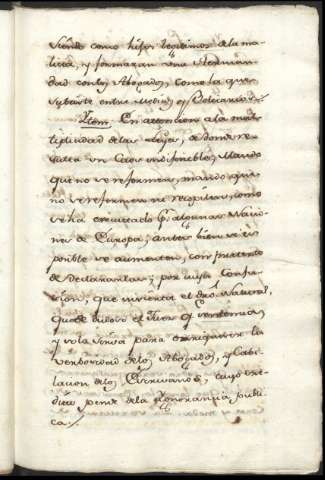 siendo como hijos legitimos de la ma-
licia, y formaran una Herman-
dad con los Abogados, como la que
subsiste entre Medicos y Boticarios.
Item. En attencion a la mul-
tiplicidad de las Leyes, de donde re-
sulta un Caos indefinible, Mando
que no se reformen, mando que
no se reformen ni recopilen, como
se ha executado por algunas Nacio-
nes de Europa; antes bien se es
posible se aumenten, con pretexto
de declararlas; por cuya confu-
sion, que invierta el dro. Natural,
quede ciego el Juez que sentencia
y solo sirva para enriquecer la
verbosidad de los Abogados, y Cabi-
lacion de los Escrivanos, cuyo
pende de la Ignorancia publi-
ca.